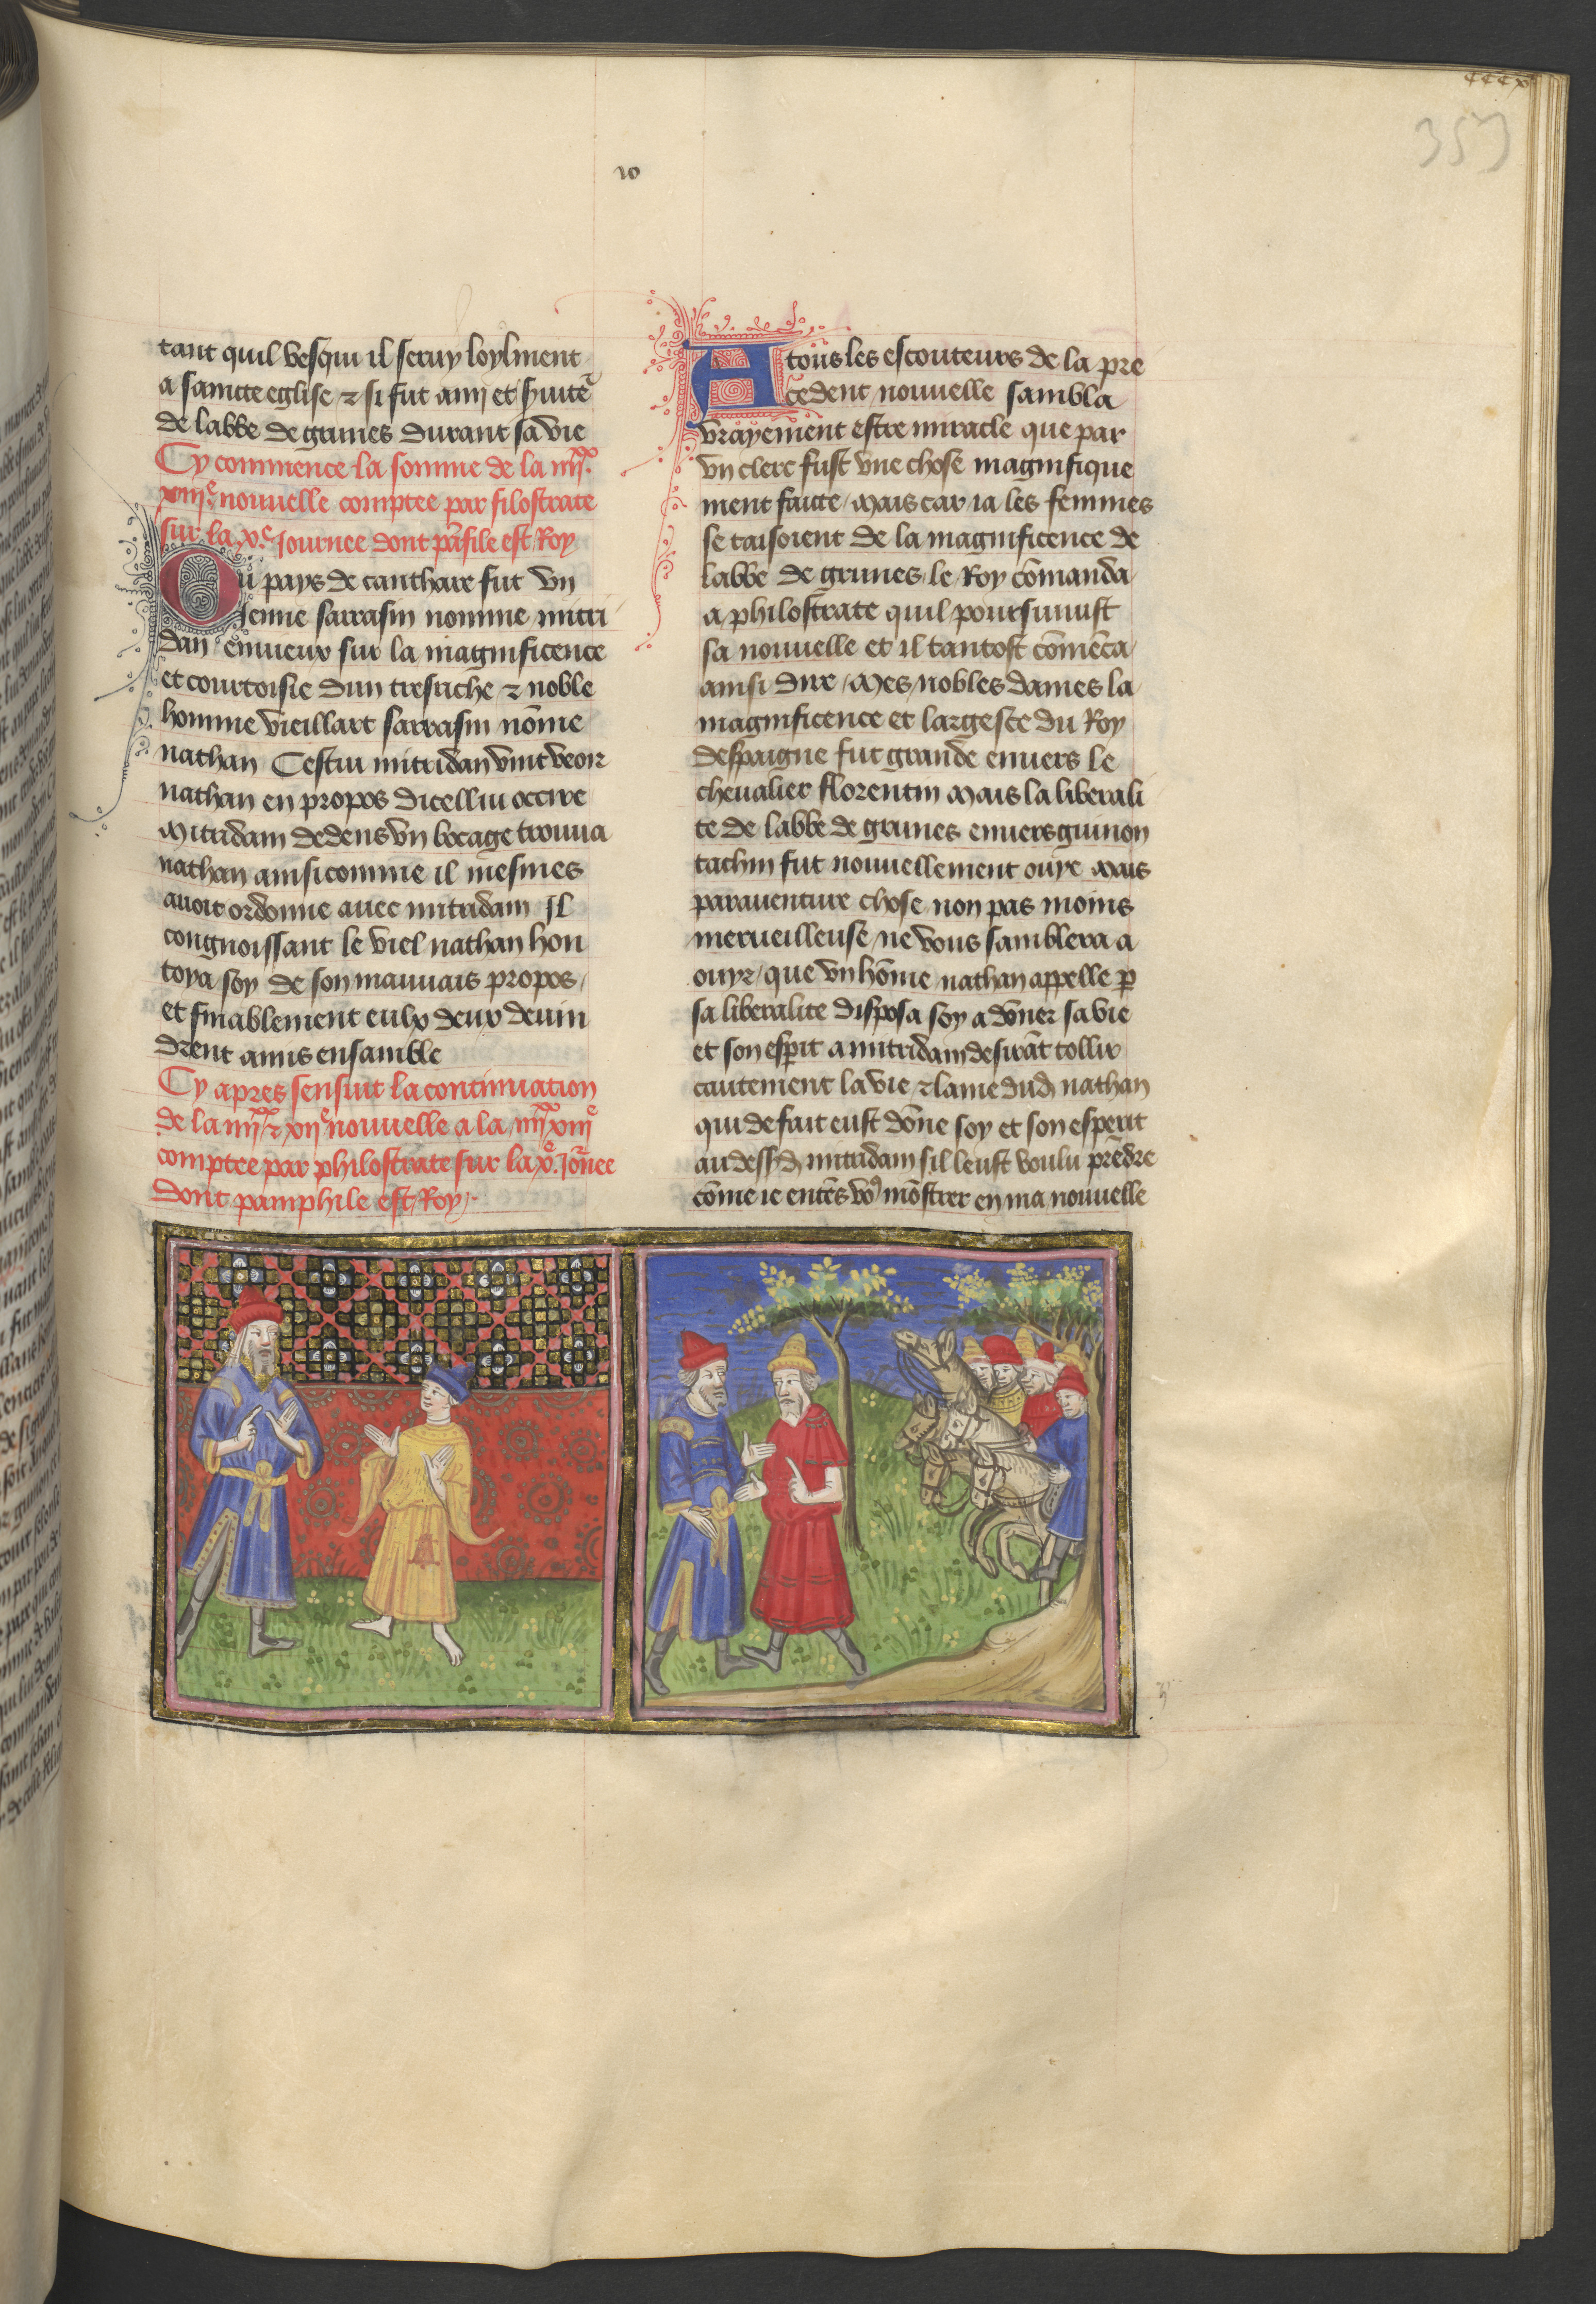 10
353
tant quil vesqui il seruy loylment
a saincte eglise ⁊ si fut amy et
de labbe de grunes durant sa vie
Cy commence la somme de la iiiixx
xiiie nouuelle comptee par filostrate
sur la xe journee dont pāfile est Roy
Ou pays de canthare fut vn
Jenne sarrasin nomme mitri
dan enuieux sur la magnificence
et courtoisie dun tresriche ⁊ noble
homme vieillart sarrasin nōme
nathan Cestui mitridan vint veoir
nathan en propos dicellui occire
Mitridam dedens vn bocage trouua
nathan ainsi comme il mesmes
auoit ordonne auec mitridam Il
congnoissant le viel nathan hon
toya soy de son mauuais propos /
et finablement eulx deux deuin
drent amis ensamble
Cy apres sensuit la continuation
de la iiiixx ⁊ xiie nouuelle a la iiiixx xiiie
comptee par philostrate sur la xe. Jōnee
dont pamphile est Roy .
A tous les escouteurs de la pre
cedent nouuelle sambla
vrayement estre miracle que par
vn clerc fust vne chose magnifique
ment faicte / Mais car ia les femmes
se taisoient de la magnificence de
labbe de grunes le Roy cōmanda
a philostrate quil poursiuuist
sa nouuelle et il tantost cōmēca
ainsi dire / Mes nobles dames la
magnificence et largesce du Roy
despaigne fut grande enuers le
cheualier florentin Mais la liberali
te de labbe de grunes enuers guinon
tachin fut nouuellement ouye Mais
parauenture chose non pas moins
merueilleuse ne vous samblera a
ouyr / que vn hōme nathan appelle p̱
sa liberalite disposa soy a dōner sa vie
et son esperit a mitridam desirāt tollir
cautement la vie ⁊ lame dud nathan
qui de fait eust dōne soy et son esperit
au dessd mitridam sil leust voulu prēdre
cōme ie entēs vo9 mōstrer en ma nouuelle